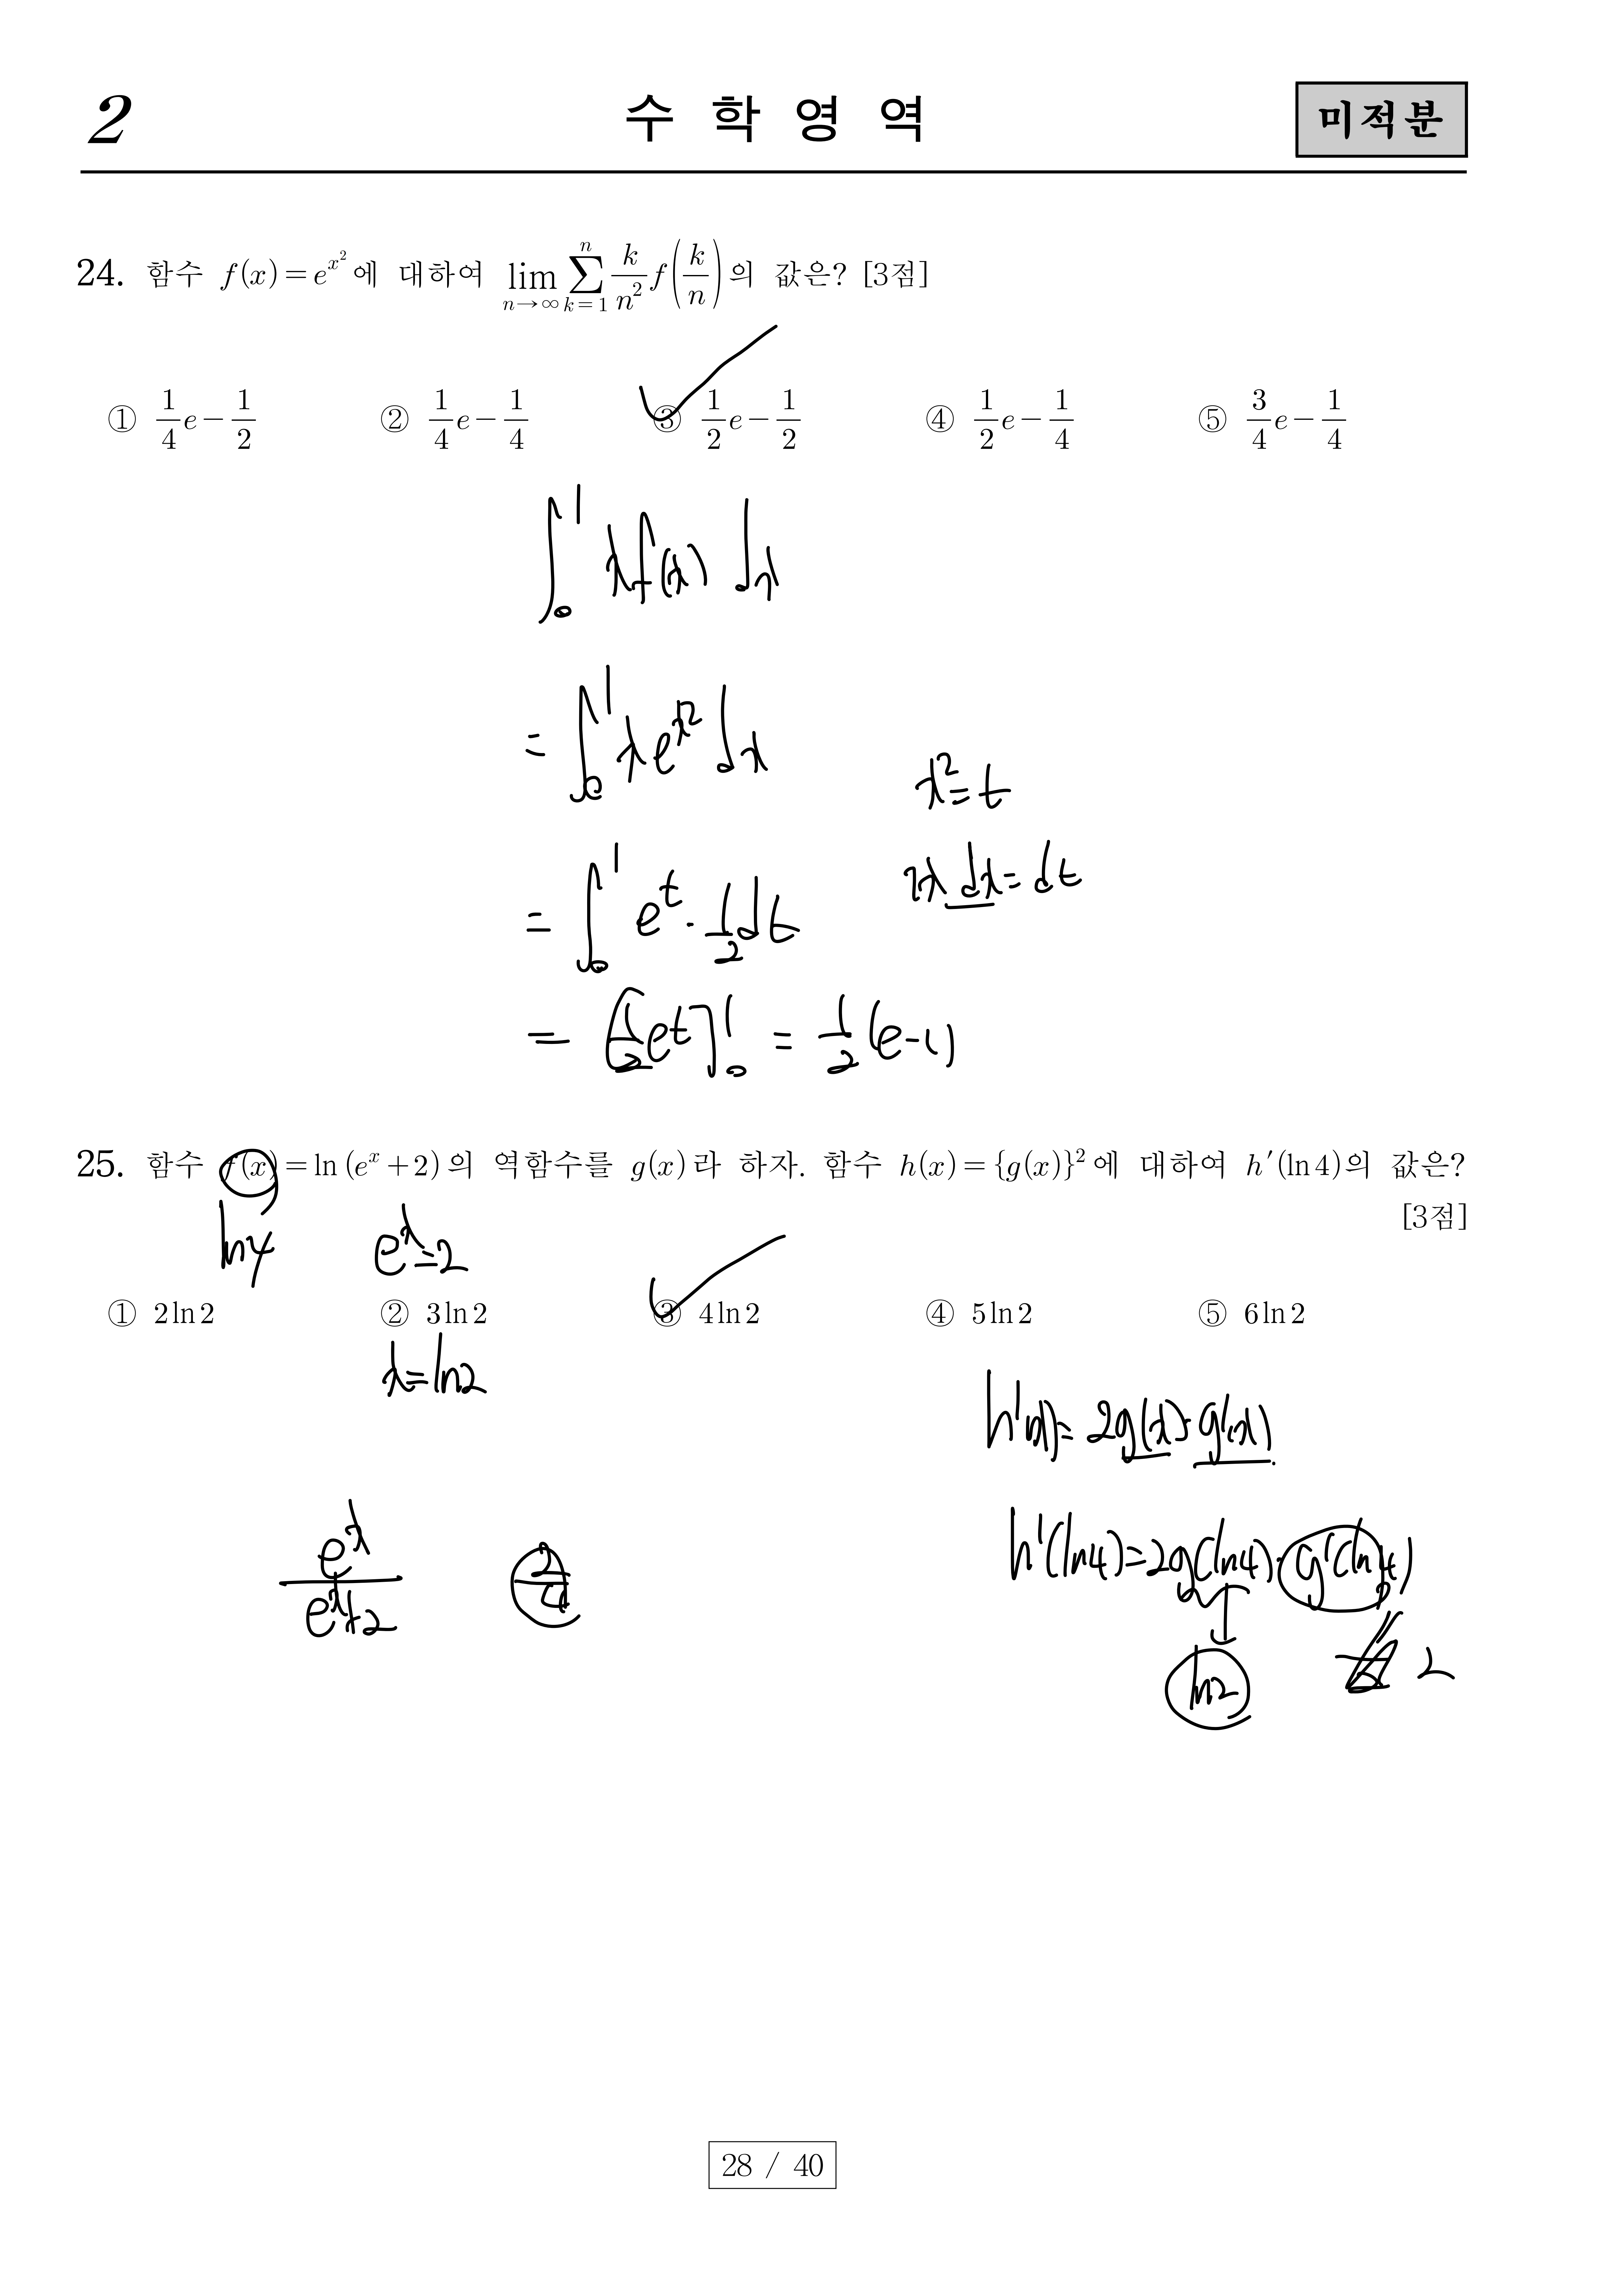 2 수 학 영 역 미적분
24. 함수 f(x)=e^{x^2}에 대하여 lim_{n→∞} ∑_{k=1}^{n} k/n^2 f(k/n)의 값은? [3점]
① 1/4 e − 1/2 ② 1/4 e − 1/4 ③ 1/2 e − 1/2 ④ 1/2 e − 1/4 ⑤ 3/4 e − 1/4
∫_0^1 x f(x) dx
= ∫_0^1 x e^{x^2} dx
x^2 = t
= ∫_0^1 e^t · 1/2 dt
2x dx = dt
= [1/2 e^t]_0^1 = 1/2 (e-1)
25. 함수 f(x)=ln(e^x+2)의 역함수를 g(x)라 하자. 함수 h(x)={g(x)}^2에 대하여 h′(ln4)의 값은?
[3점]
ln4 e^x=2
① 2ln2 ② 3ln2 ③ 4ln2 ④ 5ln2 ⑤ 6ln2
x=ln2
h'(x)= 2g(x)·g'(x)
e^x/(e^x+2) 2/4
h'(ln4)=2g(ln4)·g'(ln4)
ln2 2
28 / 40